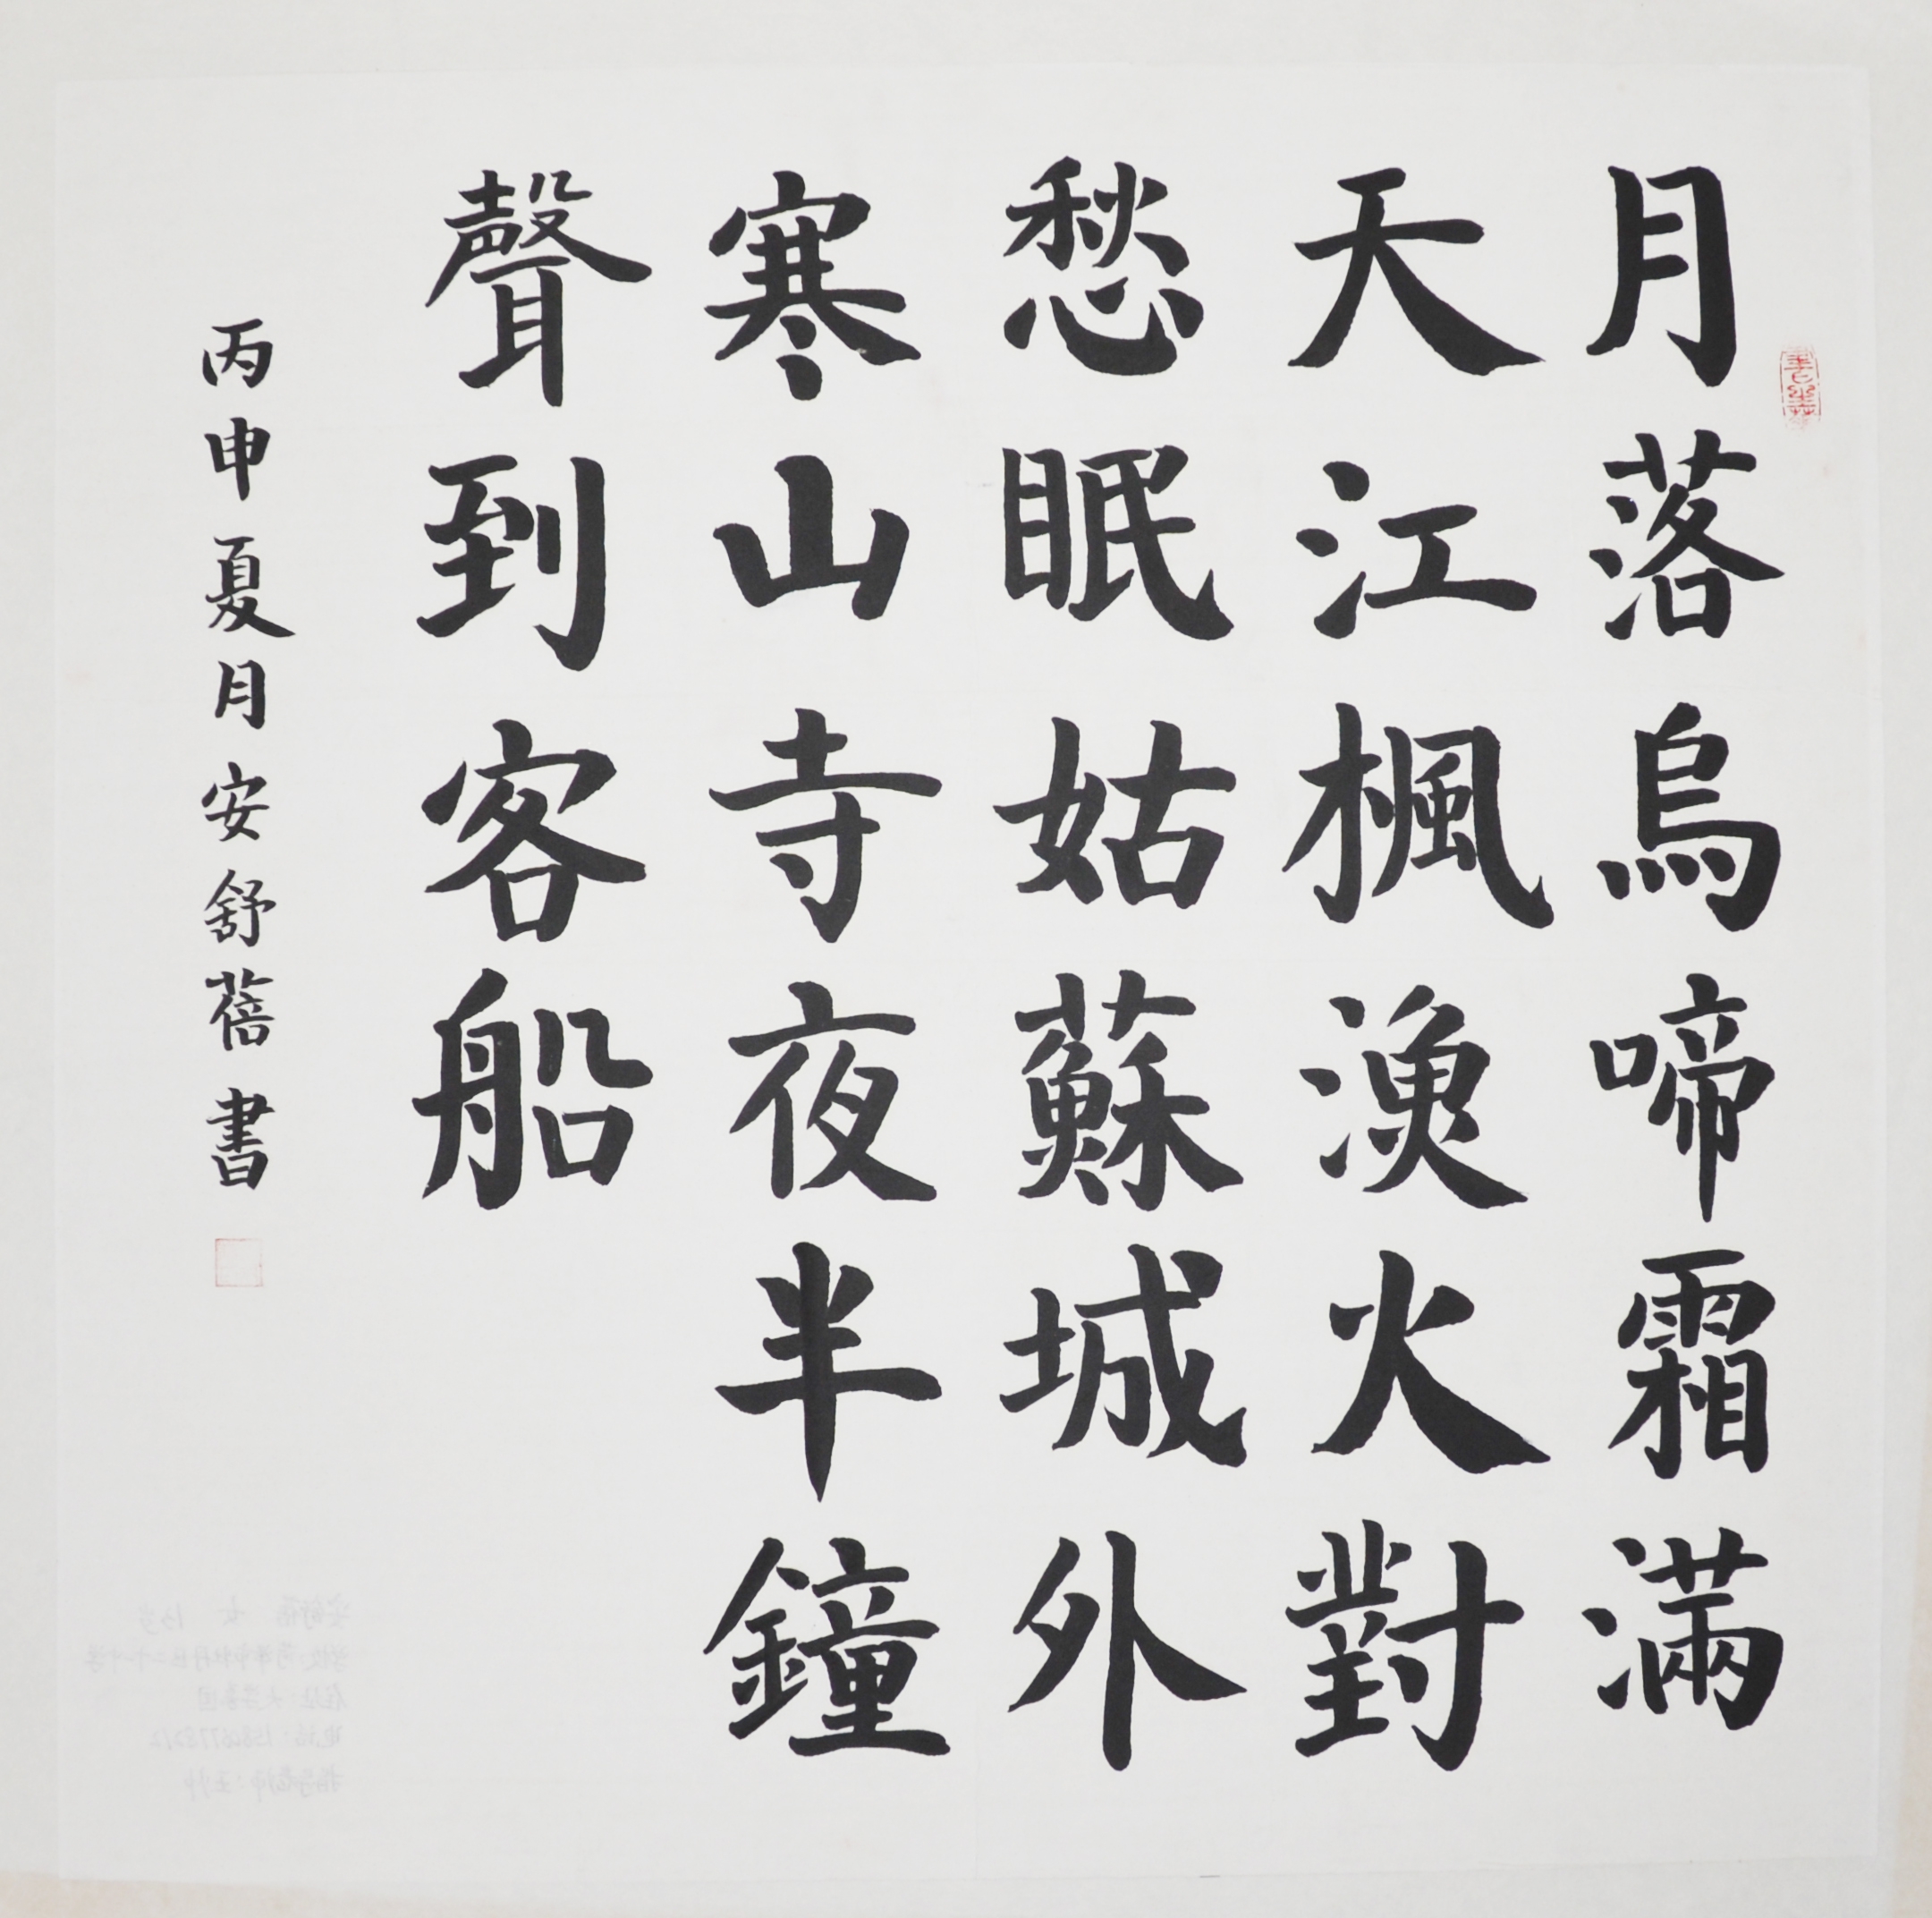 月落烏啼霜滿
天江楓漁火對
愁眠姑蘇城外
寒山寺夜半鐘
聲到客船
丙申夏月安舒蓓書